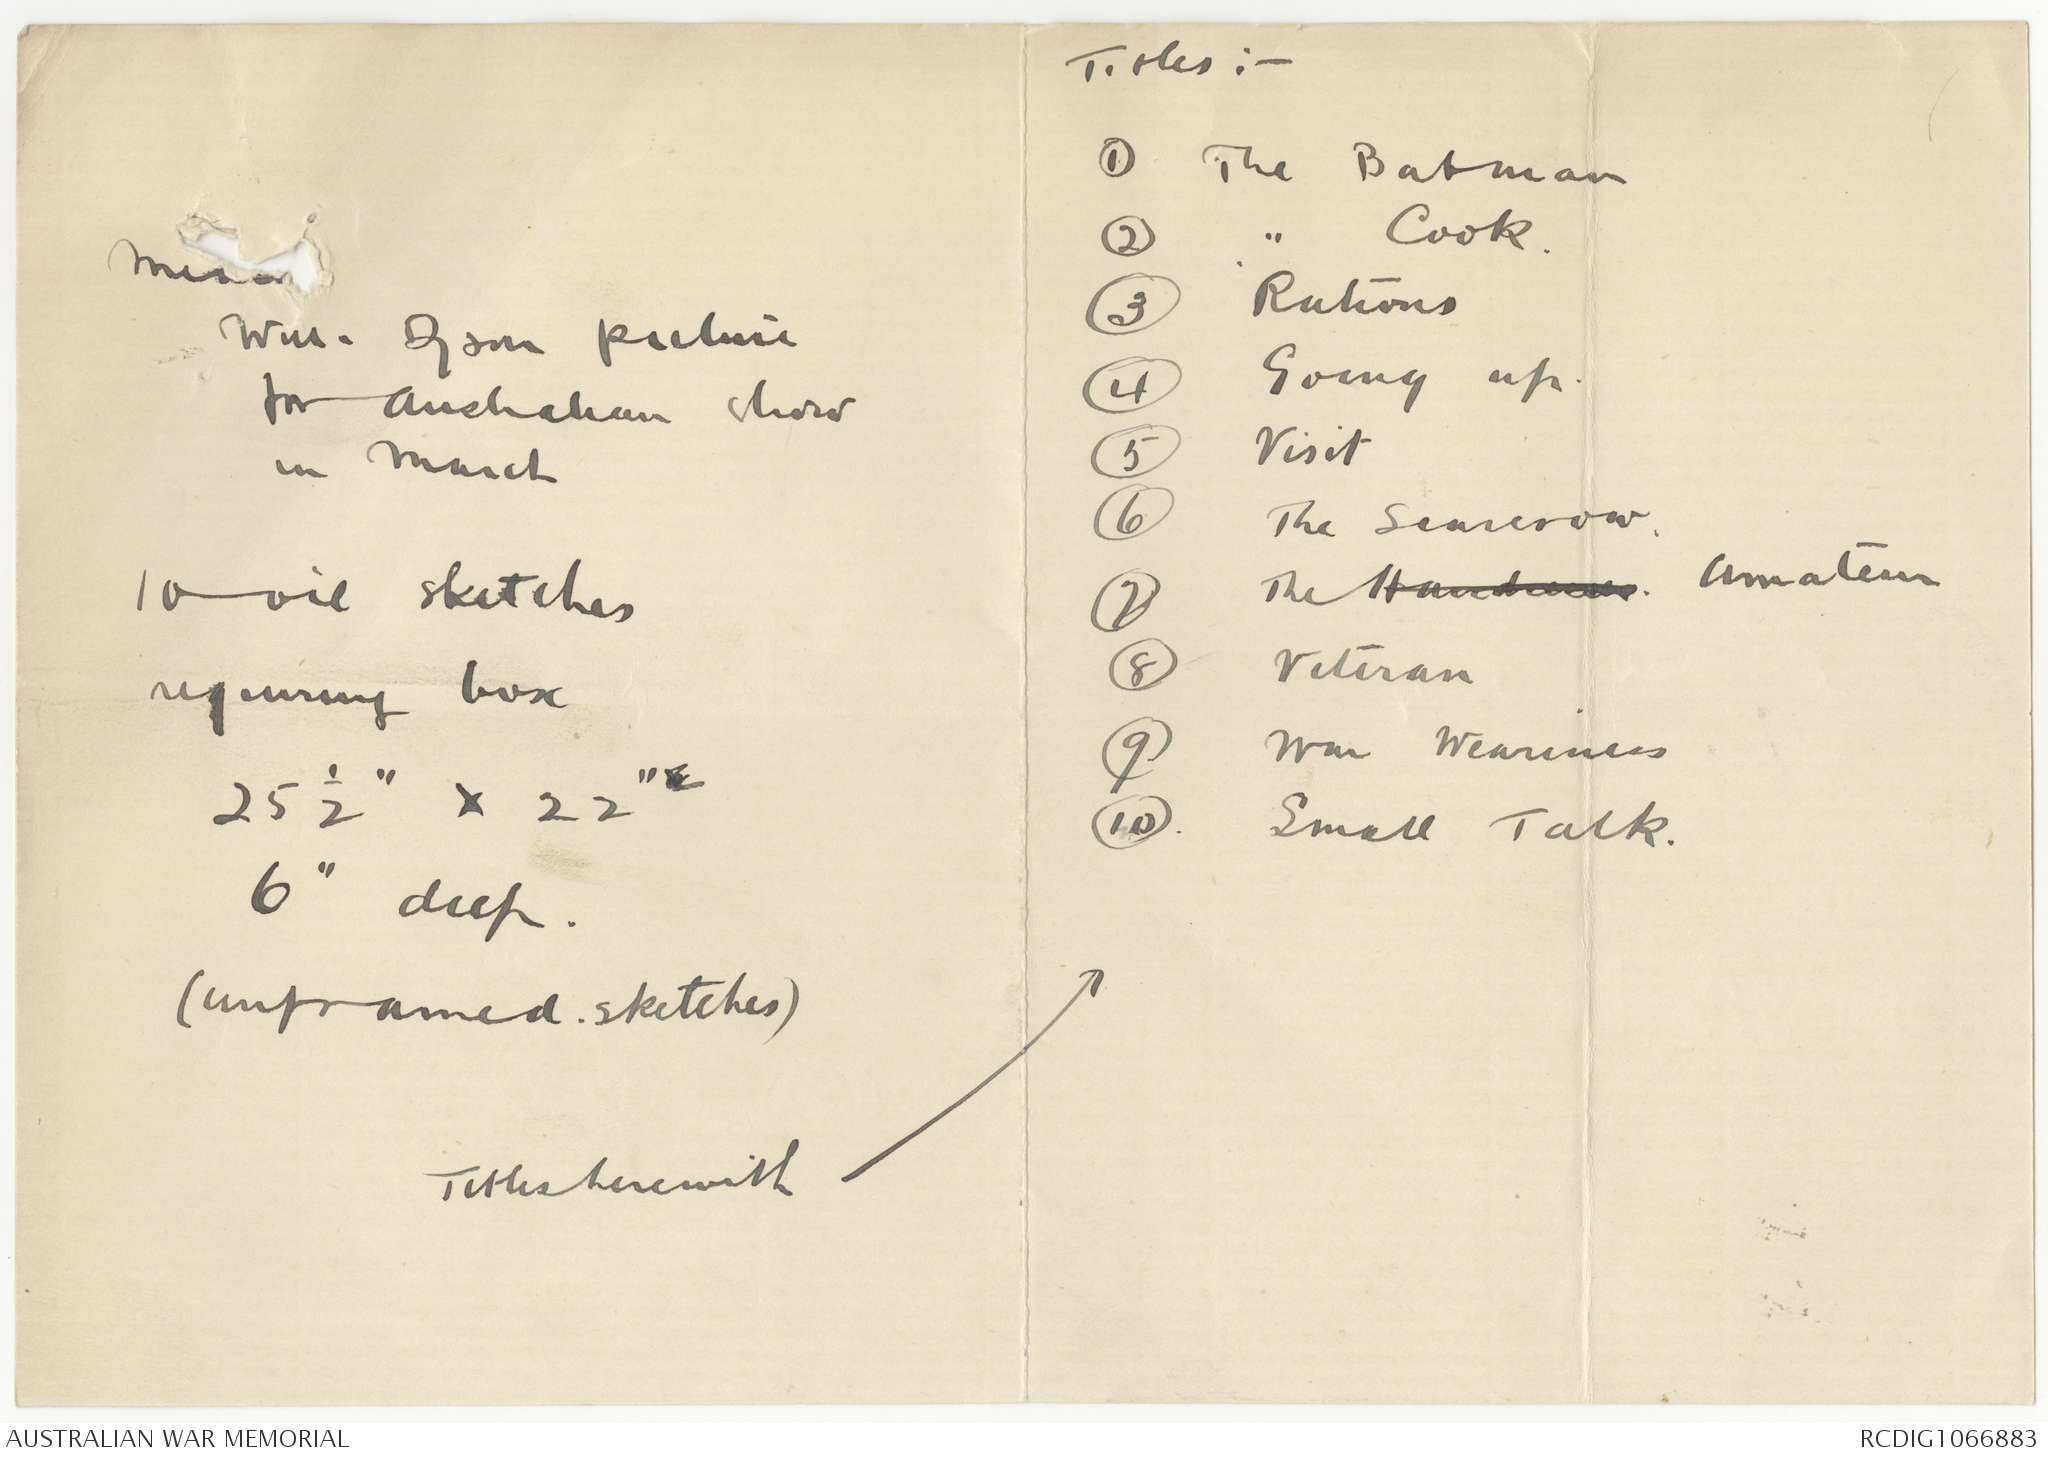 Will. Dyson picture
for Australian show
in March
10 oil sketches
requiring box
25 ½" x 22"
6" deep.
(unframed. sketches)
Titles herewith
Titles :-
1 The Batman
2 " Cook.
3 Rations
4 Going up.
5 Visit
6 The Scarecrow.
7 The Amateur
8 Veteran
9 War Weariness
10. Small Talk.
AUSTRALIAN WAR MEMORIAL
RCDIG1066883